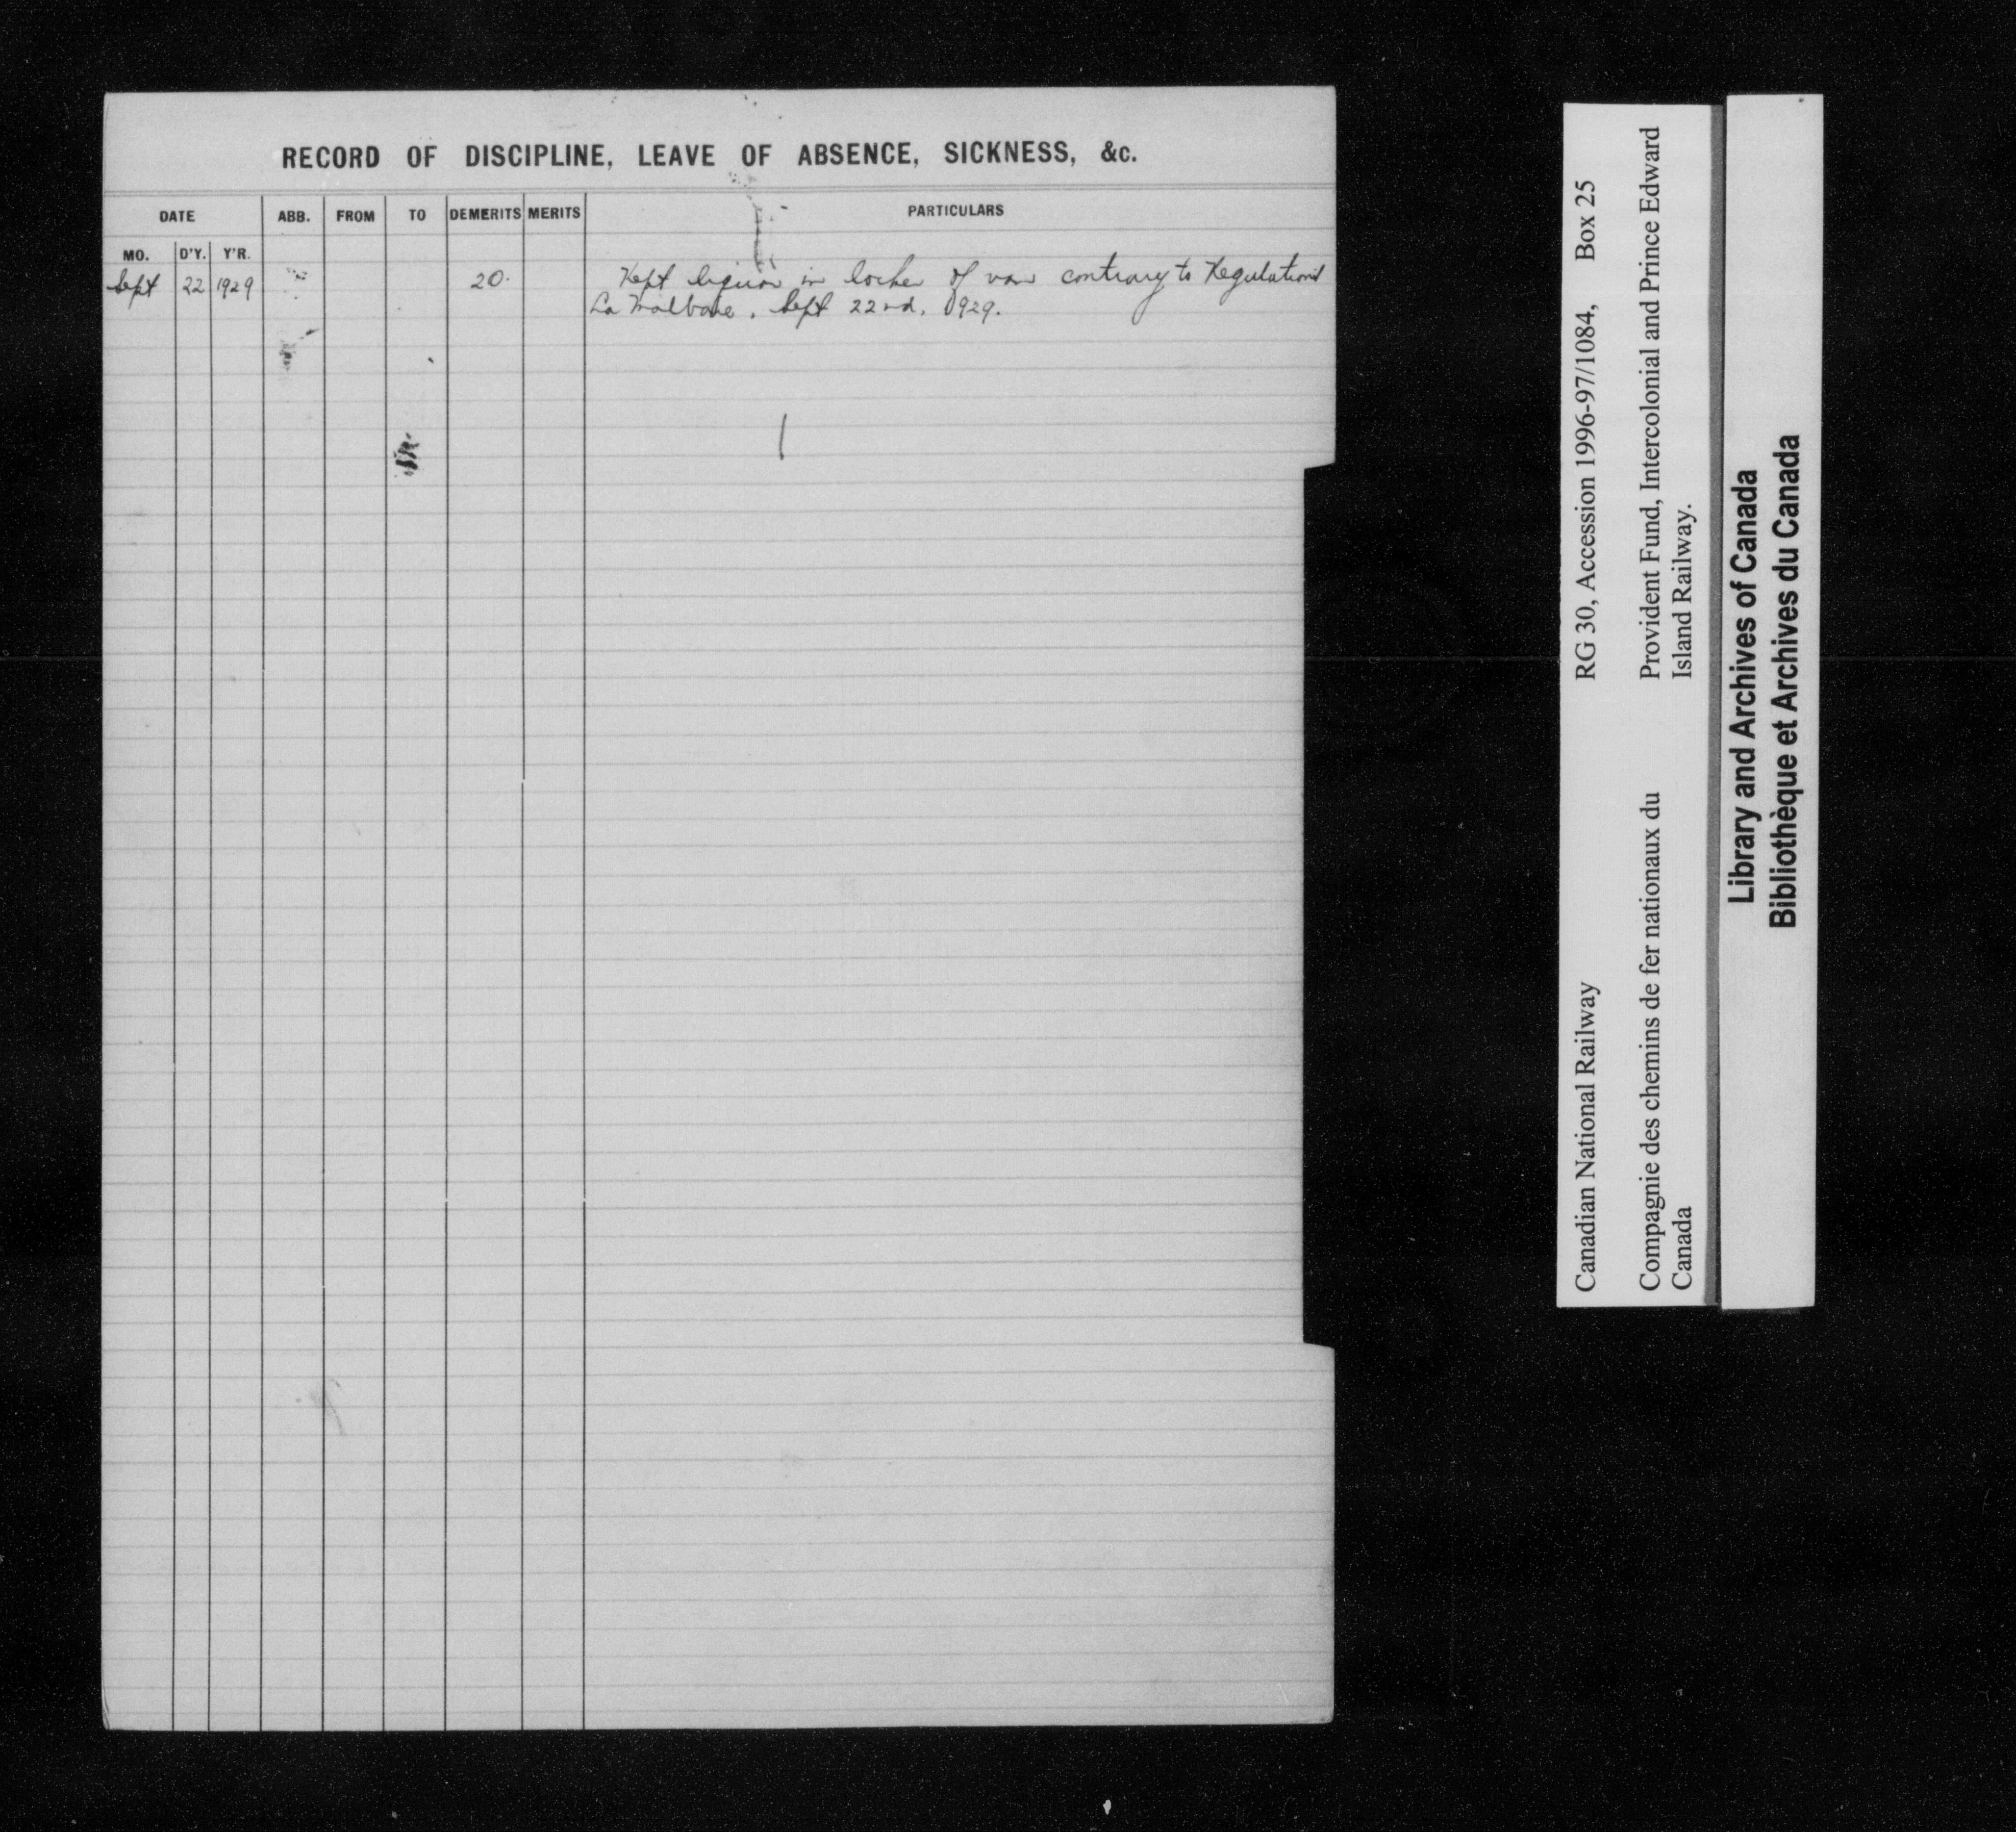 RECORD OF DISCIPLINE, LEAVE OF ABSENCE, SICKNESS, &c.
DATE ABB. FROM TO DEMERITS MERITS PARTICULARS
MO. D'Y. Y'R.
Sept 22 1929 20. Kept liquor in locker of van contrary to Regulations
La Malbaie. Sept 22nd, 1929.
Canadian National Railway RG 30, Accession 1996-97/1084, Box 25
Compagnie des chemins de fer nationaux du Provident Fund, Intercolonial and Prince Edward
Canada Island Railway.
Library and Archives of Canada
Bibliothèque et Archives du Canada